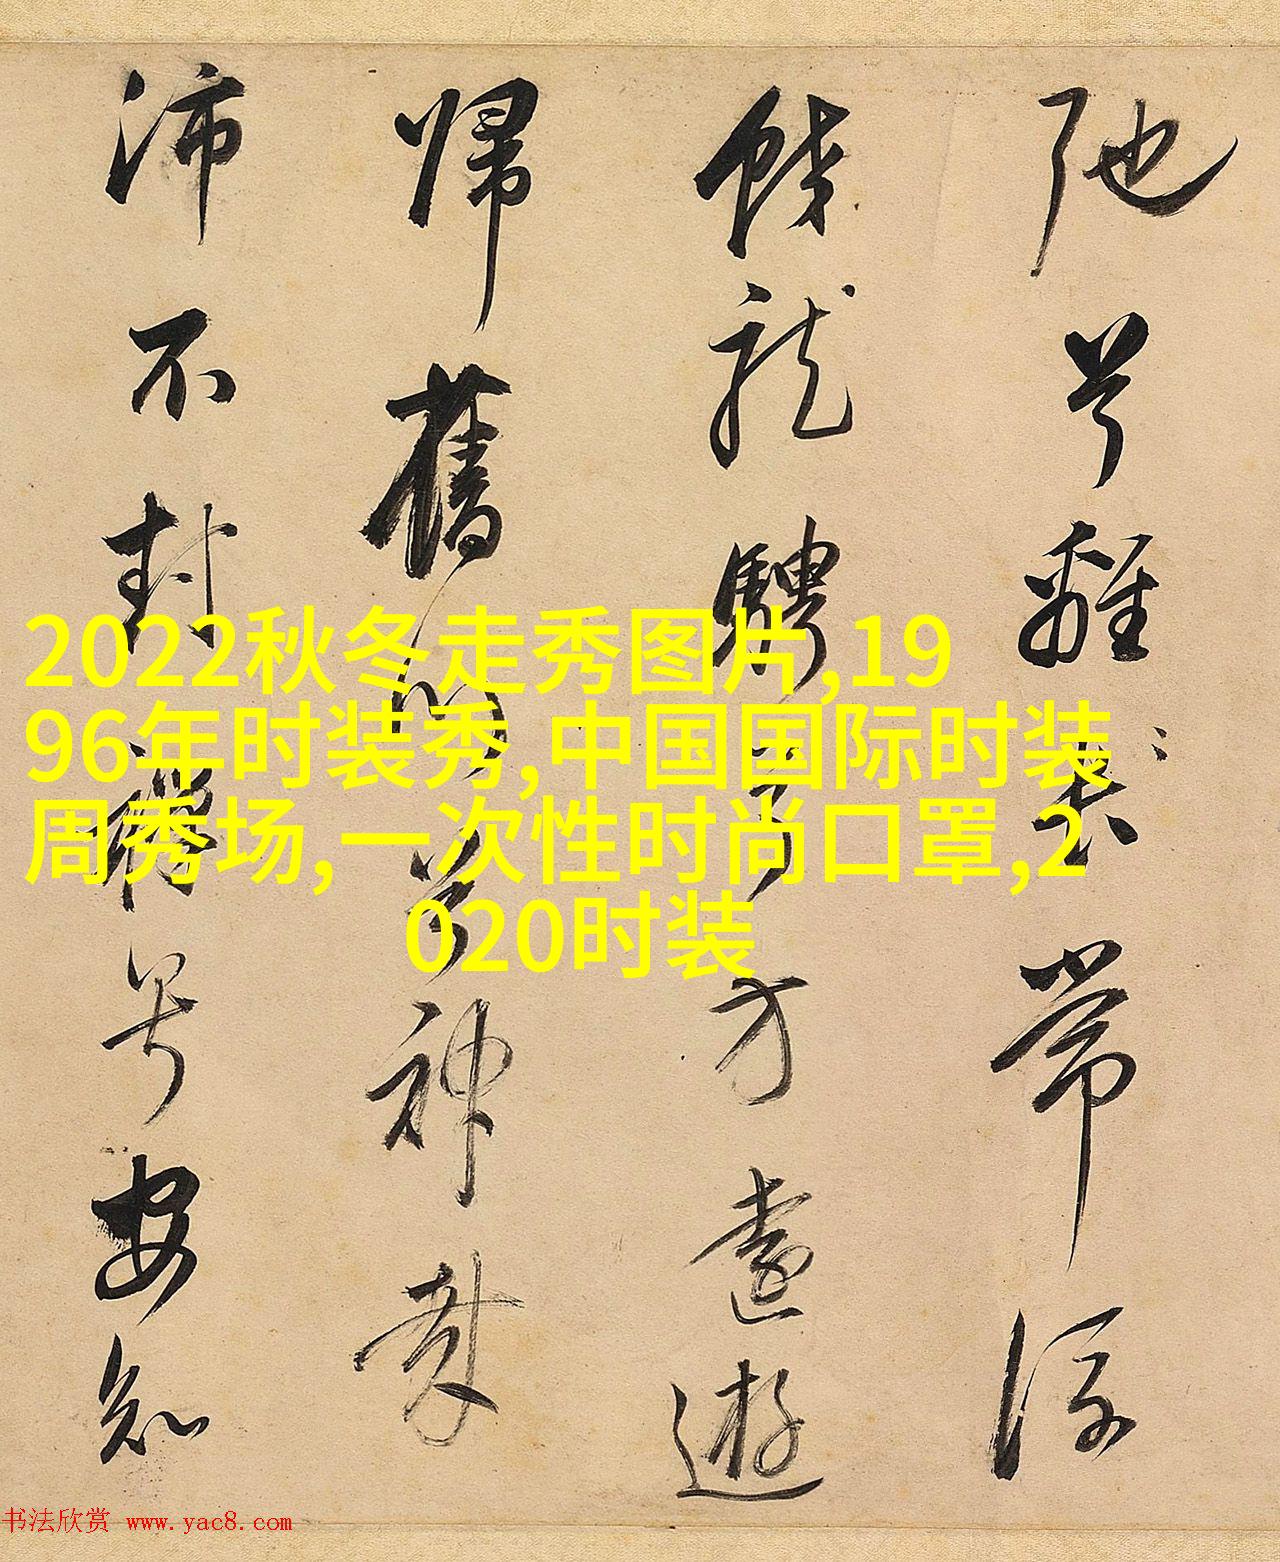 弛兮離常流
蛟龍騁兮方遠遊
歸舊川兮神哉
沛不封禪兮安知
2022秋冬走秀图片,19
96年时装秀,中国国际时装
周秀场,一次性时尚口罩,2
020时装
书法欣赏 www.yac8.com